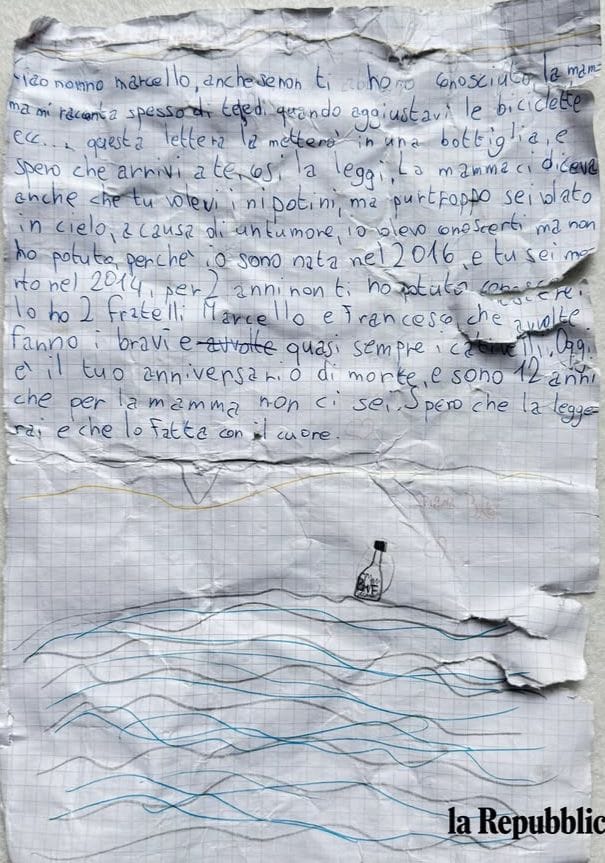 ciao nonno marcello, anche se non ti ho conosciuto la mam-
ma mi racconta spesso di te e di quando aggiustavi le biciclette
ecc... questa lettera la metterò in una bottiglia, e
spero che arrivi a te, così la leggi. La mamma ci diceva
anche che tu volevi i nipotini, ma purtroppo sei volato
in cielo, a causa di un tumore, io volevo conoscerti ma non
ho potuto, perchè io sono nata nel 2016, e tu sei mo
rto nel 2014, per 2 anni non ti ho potuto conoscere.
Io ho 2 fratelli Marcello e Francesco, che avvolte
fanno i bravi e avvolte quasi sempre i cattivelli. Oggi
è il tuo anniversario di morte, e sono 12 anni
che per la mamma non ci sei. Spero che la legge-
rai e che lo fatta con il cuore.
la Repubblic